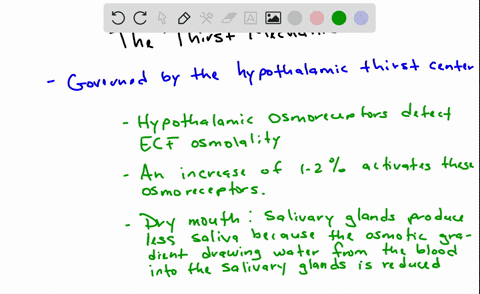 The Thirst Mechanism
- Governed by the hypothalamic thirst center
- Hypothalamic osmoreceptors detect
ECF osmolality
- An increase of 1-2% activates these
osmoreceptors.
- Dry mouth: Salivary glands produce
less saliva because the osmotic gra-
dient drawing water from the blood
into the salivary glands is reduced